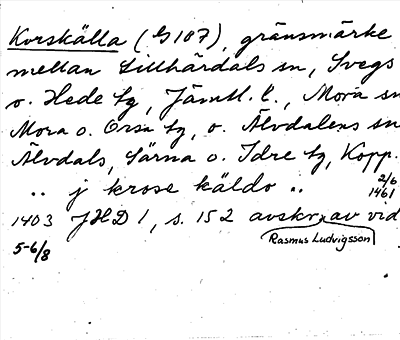 Korskälla (G 187), gränsmärke
mellan Lillhärdals sn, Svegs
o. Hede tg, Jämtl. l., Mora sn
Mora o. Orsa tg, o. Älvdalens sn
Älvdals, Särna o. Idre tg, Kopp. l.
.. j krose käldo ..
2/6
1461
1403 JHD 1, s. 152 avskr. av vid
5-6/8
Rasmus Ludvigsson